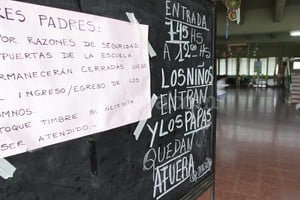 RES PADRES:
POR RAZONES DE SEGURIDAD
PUERTAS DE LA ESCUELA
MANECERÁN CERRADAS LUEGO
INGRESO/EGRESO DE LOS
MNOS.
TOQUE TIMBRE SI NECESITA
SER ATENDIDO.-
ENTRADA
1145 HS
A 12 HS
LOS NIÑOS
ENTRAN
Y LOS PAPAS
QUEDAN
AFUERA